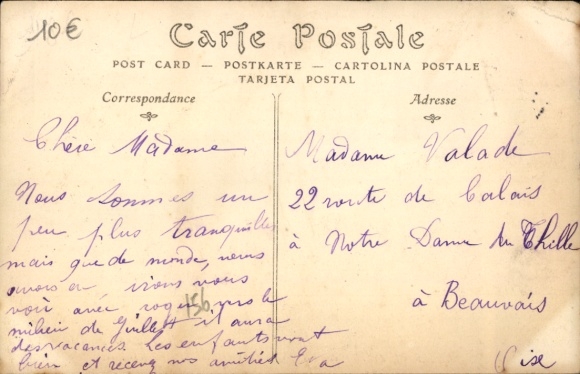 10€
Carte Postale
POST CARD — POSTKARTE — CARTOLINA POSTALE
TARJETA POSTAL
Correspondance
Chère Madame
Nous sommes un
peu plus tranquilles
mais que de monde, nous
irons vous
voir avec roger vers le
milieu de juillet il aura
des vacances. Les enfants vont
bien et recevez nos amitiés Eva
156
Adresse
Madame Valade
22 route de Calais
à Notre Dame du Thille
à Beauvais
Oise